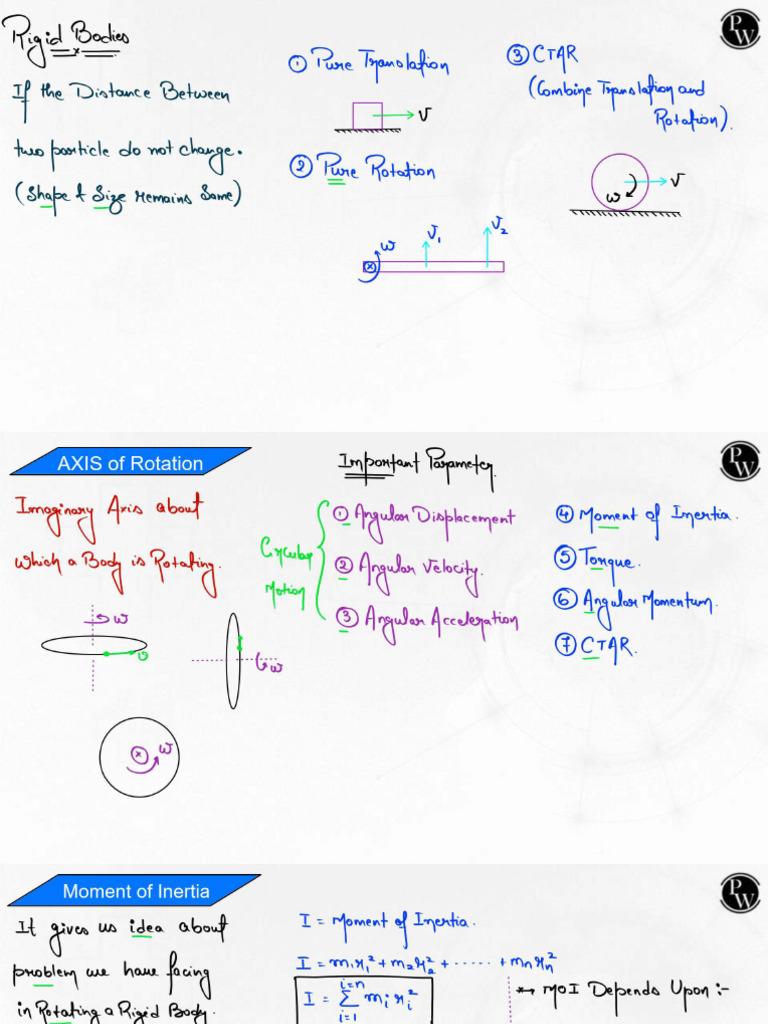 Rigid Bodies
If the Distance Between
two particle do not change.
(Shape & Size remains Same)
① Pure Translation
V
② Pure Rotation
ω
V₁
V₂
③ CTAR
(Combine Translation and
Rotation).
V
ω
PW
AXIS of Rotation
Imaginary Axis about
which a Body is Rotating.
ω
v
ω
ω
Important Parameter
Circular
Motion
① Angular Displacement
② Angular Velocity.
③ Angular Acceleration
④ Moment of Inertia.
⑤ Torque.
⑥ Angular Momentum.
⑦ CTAR.
PW
Moment of Inertia
It gives us idea about
problem we have facing
in Rotating a Rigid Body.
I = Moment of Inertia.
I = m₁r₁² + m₂r₂² + ...... + mₙrₙ²
I = Σ mᵢrᵢ²
i=n
i=1
* MOI Depends Upon :-
PW